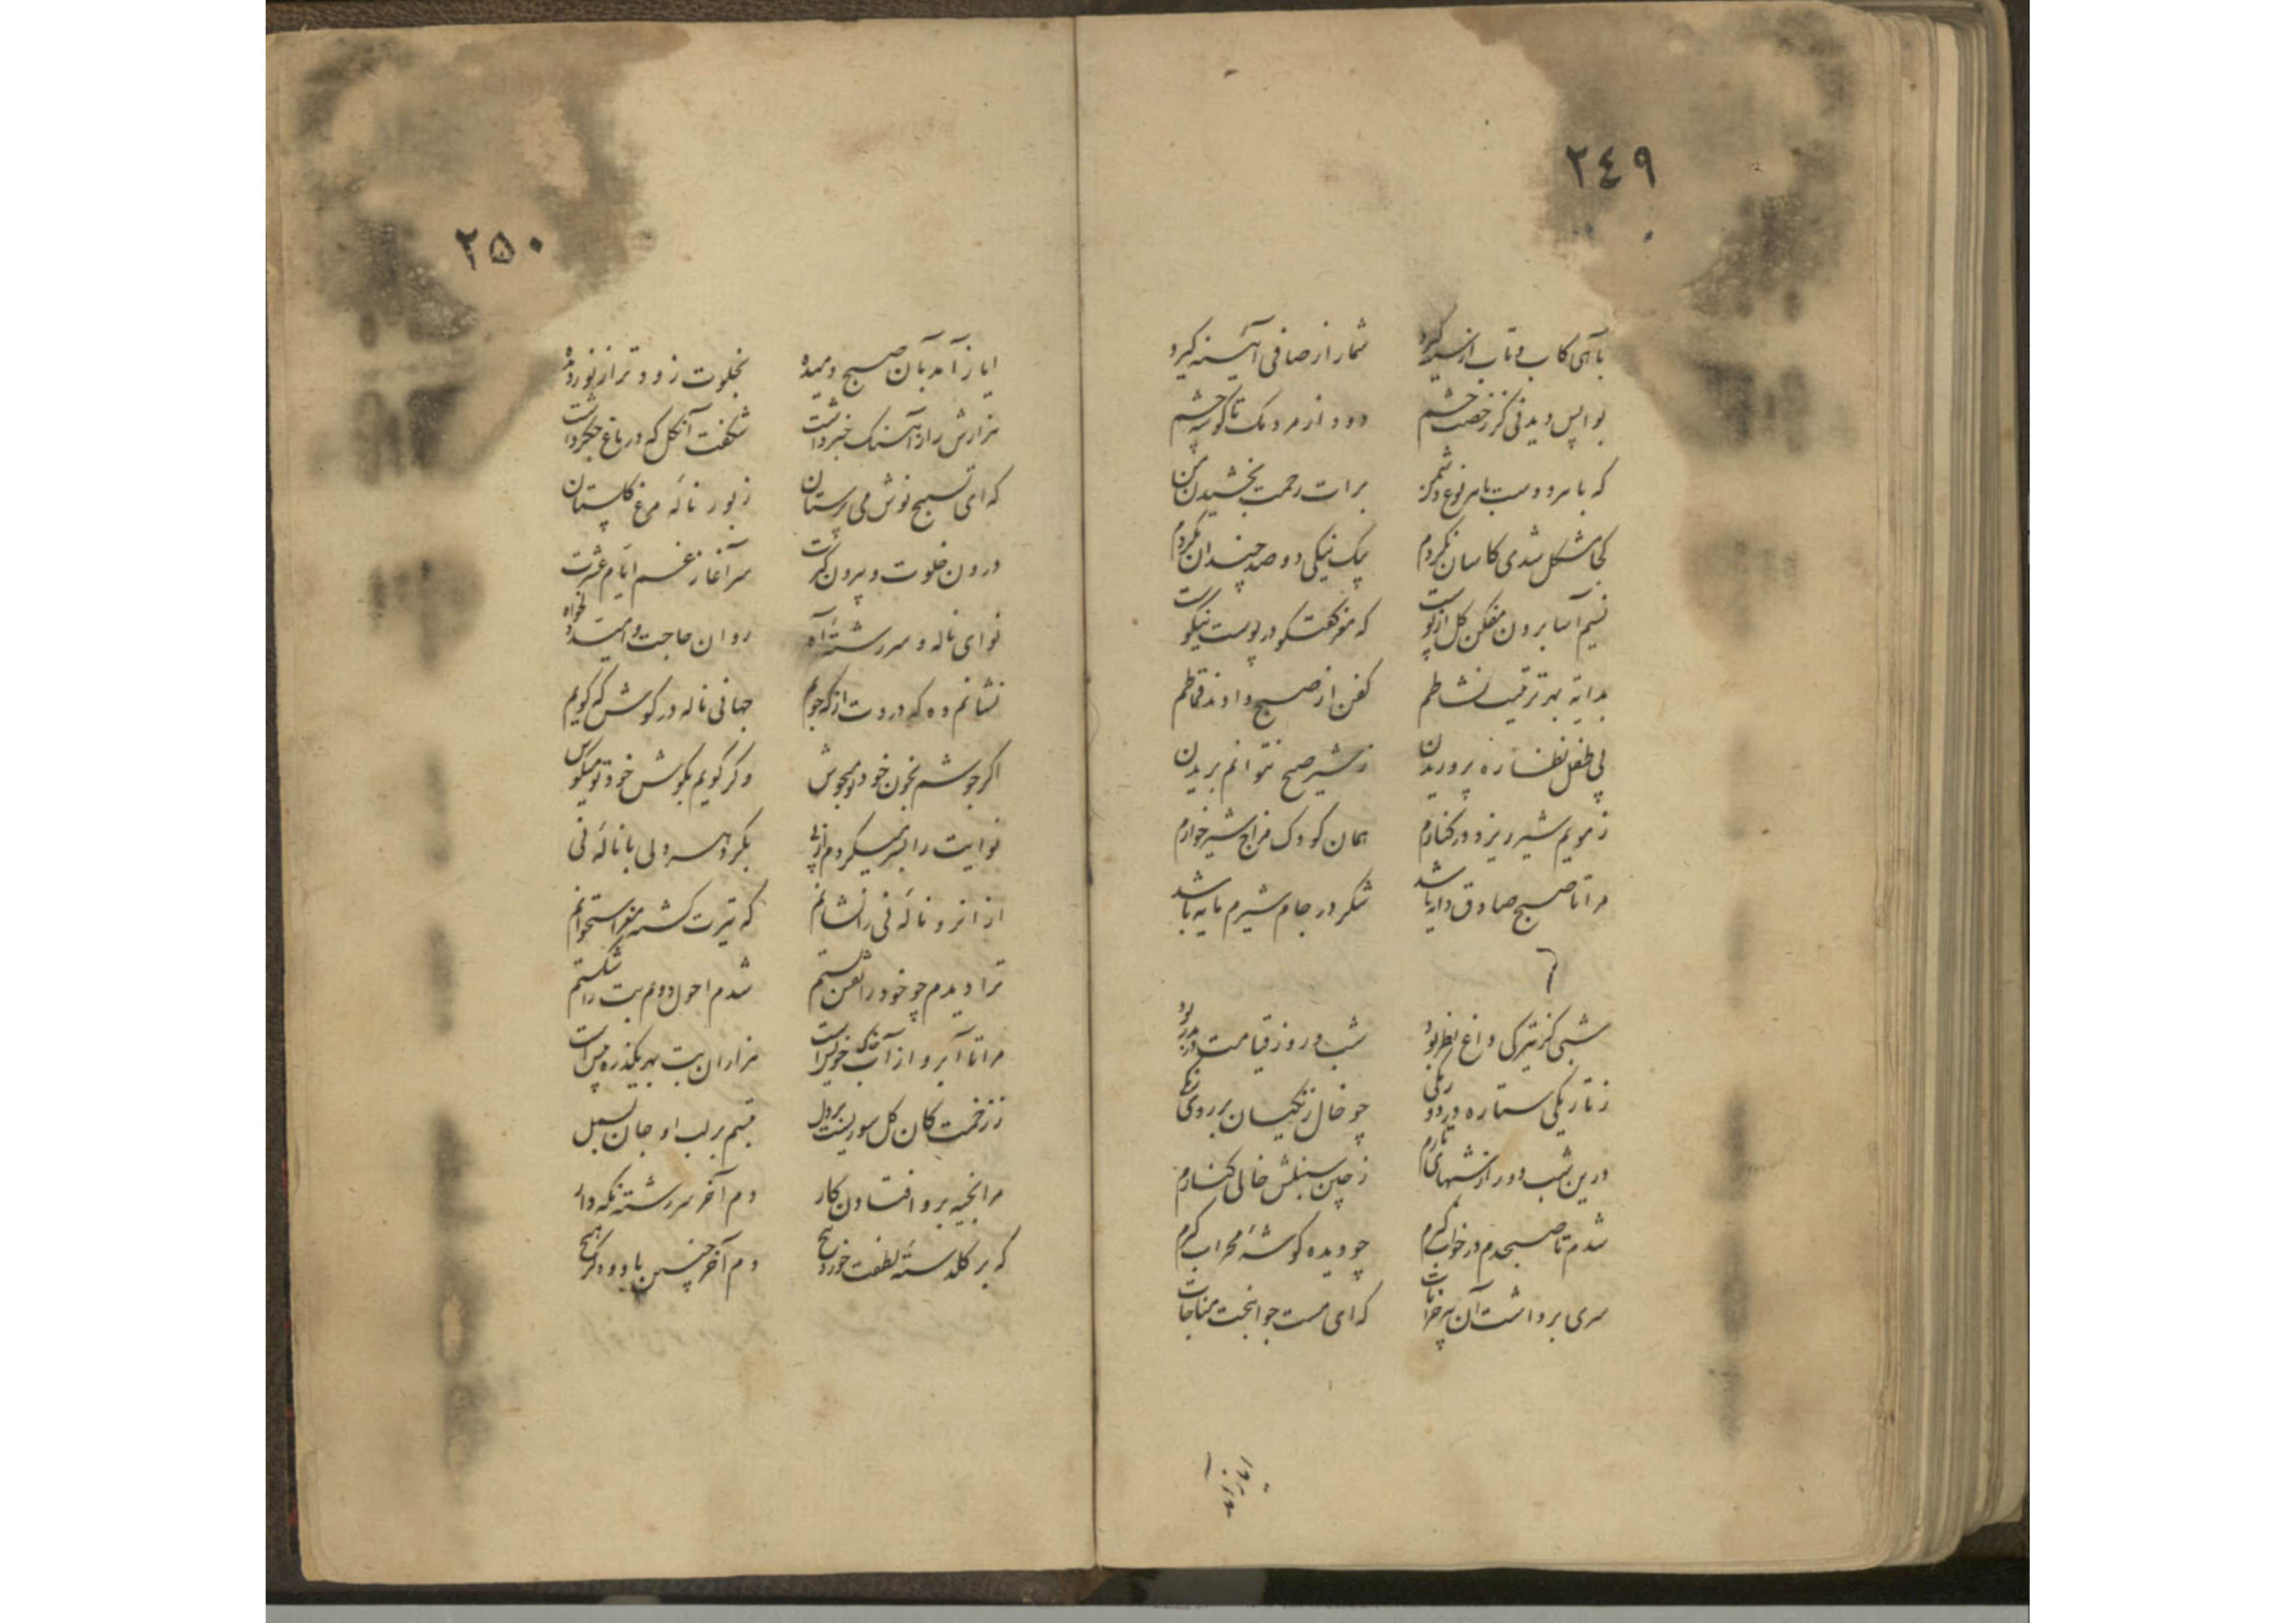 ٢٤٩
بآهی کاب و تاب از سینه گیرد شمار از صافی آئینه گیرد
بواپس دیدنی کز رخصت چشم دود از مردمک تا گوشه چشم
که با هر دوست با هر نوع دشمن برات رحمت بخشیدن من
کجا مشکل شدی کاسان نکردم یک نیکی دو صد چندان نکردم
نسیم آسا برون مفکن گل از پوست که مغز گفتگو در پوست نیکوست
بدایهٔ بهر ترتیب نشاطم کفن از صبح دادند قماطم
پی طفل نظاره پروریدن ز شیر صبح نتوانم بریدن
ز مویم شیر ریزد در کنارم همان کودک مزاج شیرخوارم
مرا تا صبح صادق دایه باشد شکر در جام شیرم مایه باشد
شبی کز تیرگی داغ نظر بود شب در روز قیامت
ز تاریکی ستاره در دو رنگی چو خال زنگیان بر روی زنگی
درین شب دور از شبهای تارم ز چین سنبلش خالی کنارم
شدم تا صبحدم در خواب گیرم چو دیده گوشهٔ محراب گیرم
سری برداشت آن پیر خرابات که ای مست جوانبخت مناجات
٢٥٠
ایاز آمد بآن صبح دمیده بخلوت زودتر از نور دیده
هزارش راز آهنگ خبر داشت شگفت آن گل که در باغ جگر داشت
که ای تسبیح نوش می پرستان زبور نالهٔ مرغ گلستان
درون خلوت و بیرون کثرت سرآغاز غم ایام عشرت
نوای ناله و سررشتهٔ آه روان حاجت و امید دلخواه
نشانم ده که دردت از که جویم جهانی ناله در گوش که گویم
اگر جوشم بخون خود تو میجوش وگر گویم بگوش خود تو میگوش
نوایت را بسر میکردم از پی بگرد هر دلی با نالهٔ نی
از انرو نالهٔ نی را نشانم که تیرت گشته مغز استخوانم
ترا دیدم چو خود را نقش بستم شدم احول دوم بت را شکستم
مرا تا آبرو از آب خویش است هزاران بت بهر یکذره پیش است
ز زخمت کان گل سوریست بر دل تبسم بر لب او جان بسمل
مرا بخیه برو افتادن کار دم آخر سررشته نگه دار
که بر گلدستهٔ لطفت خورد هیچ دم آخر چنین باد و دگر هیچ